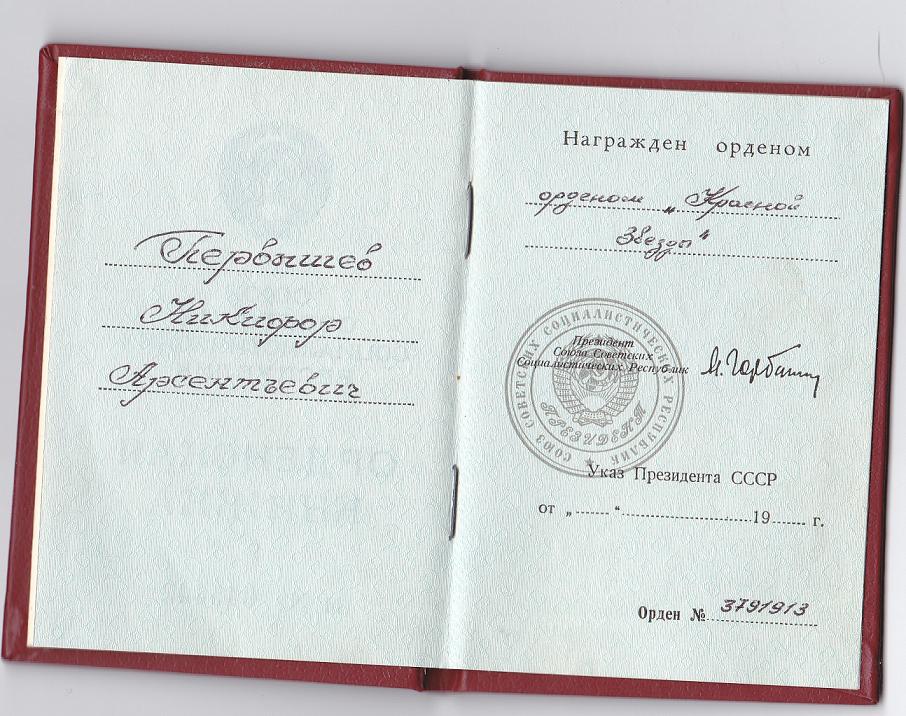 Первышев
Никифор
Арсентьевич
Награжден орденом
орденом „Красной
Звезды“
СОЮЗ СОВЕТСКИХ СОЦИАЛИСТИЧЕСКИХ РЕСПУБЛИК
Президент
Союза Советских
Социалистических Республик
М. Горбачев
ПРЕЗИДЕНТ
Указ Президента СССР
от „ “ 19 г.
Орден № 3791913